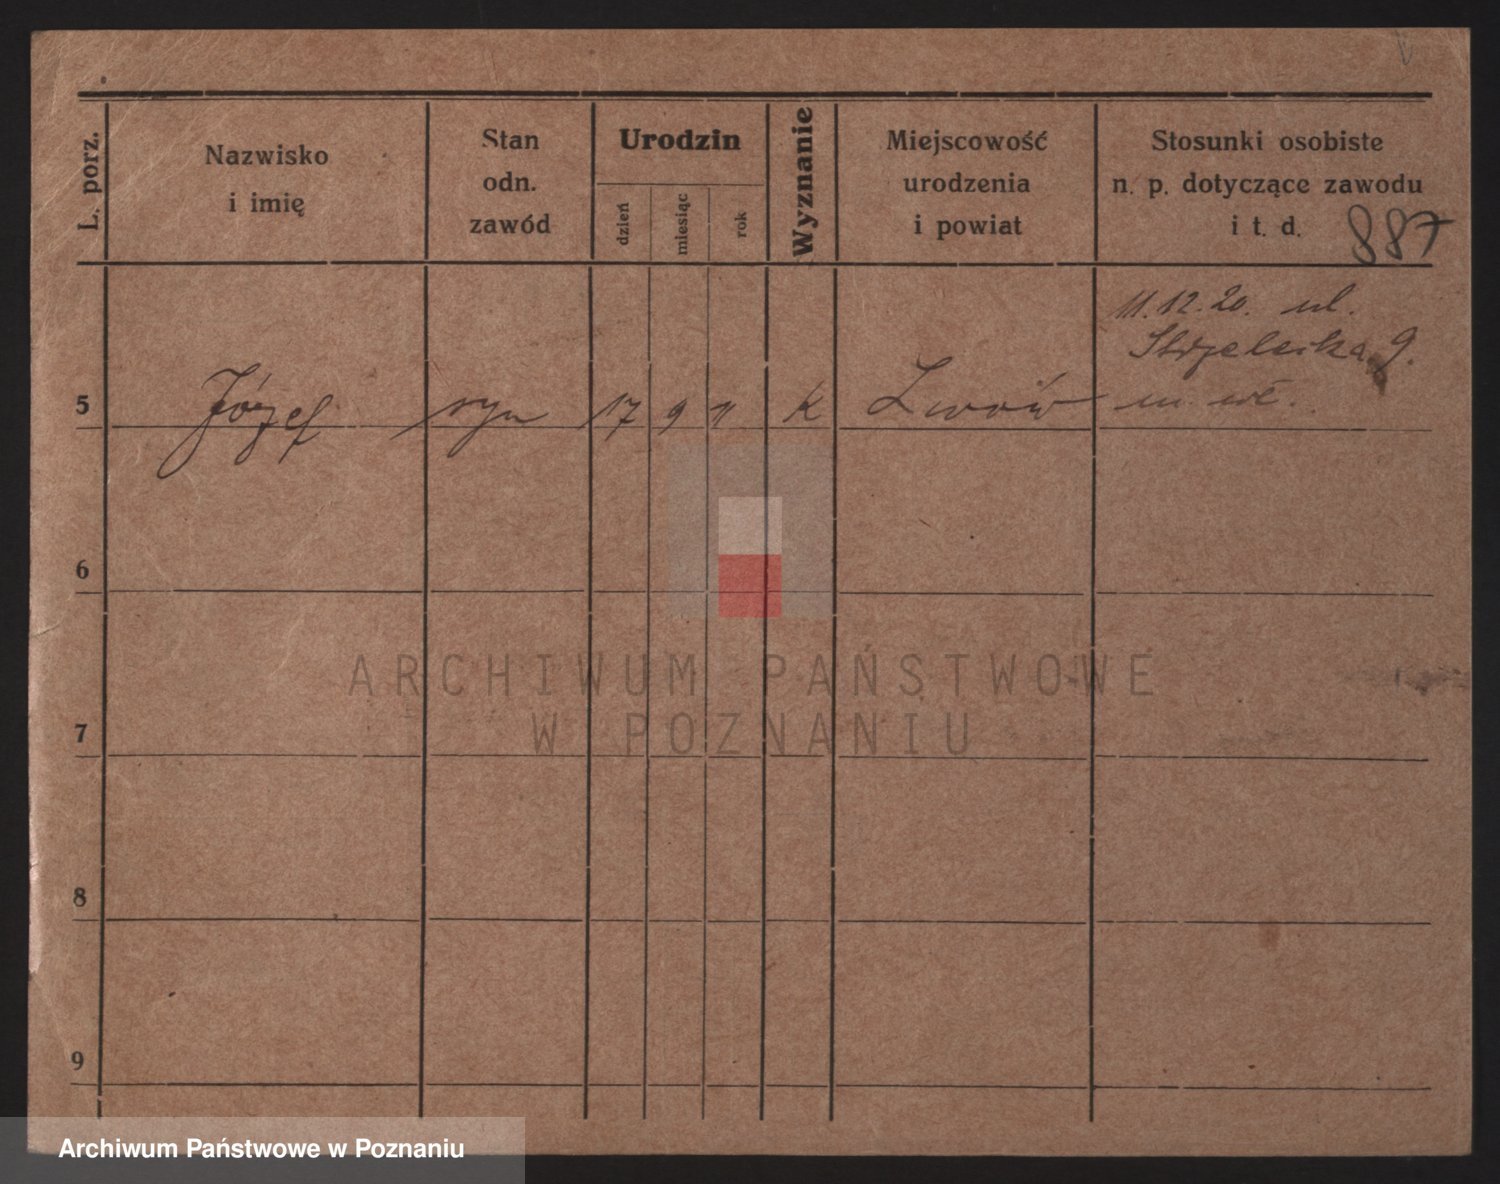 L. porz.
Nazwisko
i imię
Stan
odn.
zawód
Urodzin
dzień
miesiąc
rok
Wyznanie
Miejscowość
urodzenia
i powiat
Stosunki osobiste
n. p. dotyczące zawodu
i t. d.
887
11.12.20. ul.
Strzelecka 9.
5 Józef syn 17 9 11 K Lwów
6
7
8
9
ARCHIWUM PAŃSTWOWE
W POZNANIU
Archiwum Państwowe w Poznaniu